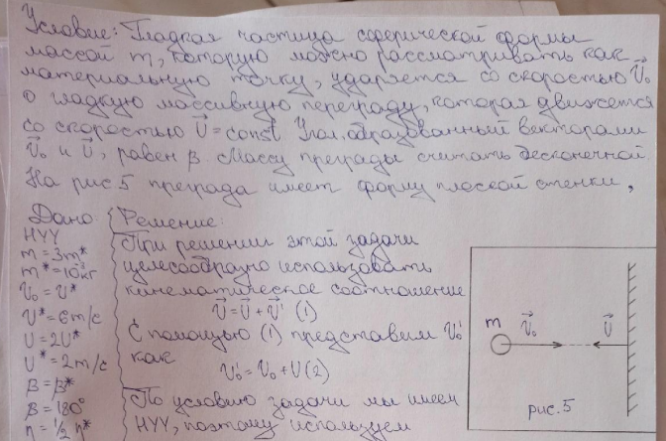 Условие: Гладкая частица сферической формы
массой m, которую можно рассматривать как
материальную точку, ударяется со скоростью V⃗₀
о гладкую массивную преграду, которая движется
со скоростью U⃗ = const Угол, образованный векторами
V⃗₀ и U⃗, равен β. Массу преграды считать бесконечной.
На рис. 5 преграда имеет форму плоской стенки,
Дано:
НУУ
m = 3m*
V₀ = V*
V* = 6м/с
U = 2U*
U* = 2м/с
β = β*
β = 180°
η = 1/2 η*
Решение:
При решении этой задачи
целесообразно использовать
кинематическое соотношение
V⃗ = U⃗ + V⃗' (1)
С помощью (1) представим V₀'
как
V₀' = V₀ + U (2)
По условию задачи мы имеем
НУУ, поэтому используем
m V⃗₀ U⃗
рис. 5